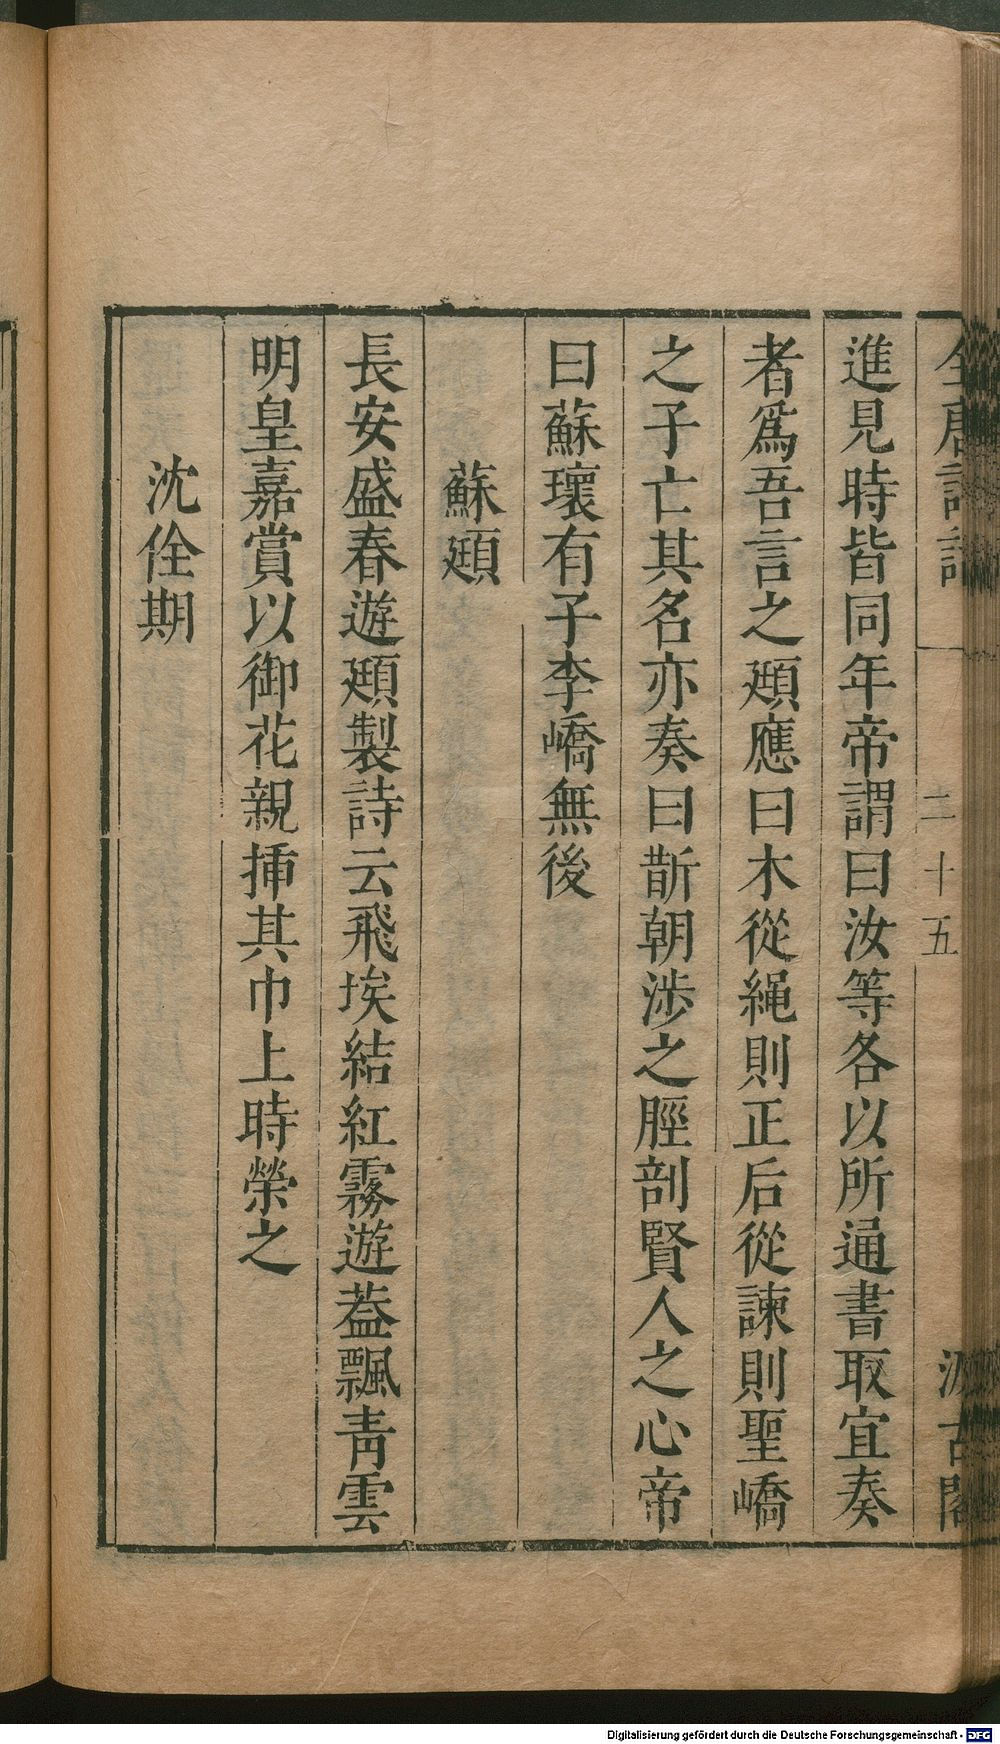 全唐詩話
二十五
汲古閣
進見時皆同年帝謂曰汝等各以所通書取宜奏
者爲吾言之頲應曰木從繩則正后從諫則聖嶠
之子亡其名亦奏曰斮朝涉之脛剖賢人之心帝
曰蘇瓌有子李嶠無後
蘇頲
長安盛春遊頲製詩云飛埃結紅霧遊葢飄靑雲
明皇嘉賞以御花親揷其巾上時榮之
沈佺期
Digitalisierung gefördert durch die Deutsche Forschungsgemeinschaft - DFG